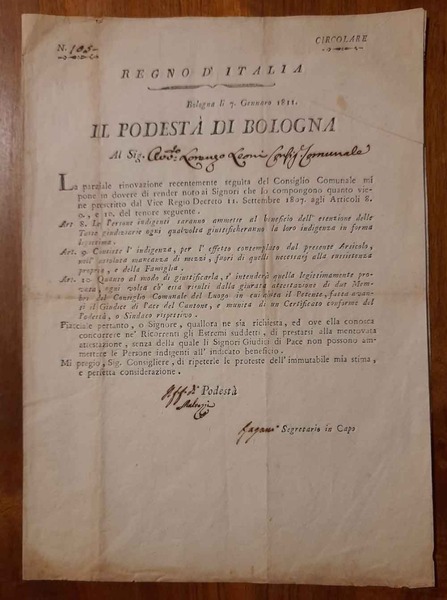 N. 105
CIRCOLARE
REGNO D'ITALIA
Bologna li 7. Gennaro 1811.
IL PODESTÀ DI BOLOGNA
Al Sig. Avv.to Lorenzo Leoni Consig.e Comunale
La parziale rinovazione recentemente seguita del Consiglio Comunale mi
pone in dovere di render noto ai Signori che lo compongono quanto viene
prescritto dal Vice Regio Decreto 11. Settembre 1807. agli Articoli 8.
9. e 10. del tenore seguente.
Art 8. Le Persone indigenti saranno ammesse al beneficio dell' esenzione delle
Tasse giudiziarie ogni qualvolta giustificheranno la loro indigenza in forma
legittima.
Art. 9 Consiste l' indigenza, per l' effetto contemplato dal presente Articolo,
nell' assoluta mancanza di mezzi, fuori di quelli necessarj alla sussistenza
propria, e della Famiglia.
Art. 10 Quanto al modo di giustificarla, s' intenderà quella legittimamente pro-
vata, ogni volta ch' essa risulti dalla giurata attestazione di due Mem-
bri del Consiglio Comunale del Luogo in cui abita il Petente, fatta avan-
ti il Giudice di Pace del Cantone, e munita di un Certificato conforme del
Podestà, o Sindaco rispettivo.
Piacciale pertanto, o Signore, quallora ne sia richiesta, ed ove ella conosca
concorrere ne' Ricorrenti gli Estremi suddetti, di prestarsi alla mentovata
attestazione, senza della quale li Signori Giudici di Pace non possono am-
mettere le Persone indigenti all' indicato beneficio.
Mi pregio, Sig. Consigliere, di ripeterle le proteste dell' immutabile mia stima,
e perfetta considerazione.
Podestà
Segretario in Capo